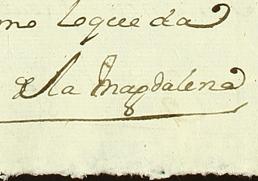 mo loqueda
de la Magdalena